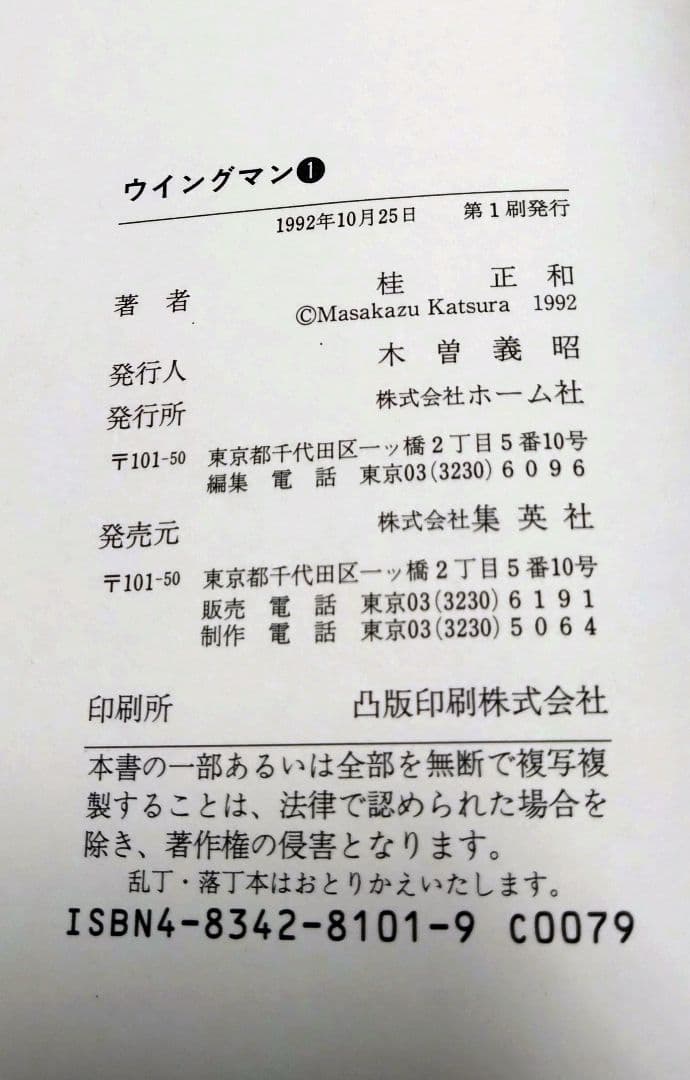 ウイングマン❶
1992年10月25日　第1刷発行
著者　桂正和
©Masakazu Katsura 1992
発行人　木曽義昭
発行所　株式会社ホーム社
〒101-50　東京都千代田区一ッ橋2丁目5番10号
編集　電話　東京03(3230)6096
発売元　株式会社集英社
〒101-50　東京都千代田区一ッ橋2丁目5番10号
販売　電話　東京03(3230)6191
制作　電話　東京03(3230)5064
印刷所　凸版印刷株式会社
本書の一部あるいは全部を無断で複写複
製することは、法律で認められた場合を
除き、著作権の侵害となります。
乱丁・落丁本はおとりかえいたします。
ISBN4-8342-8101-9 C0079